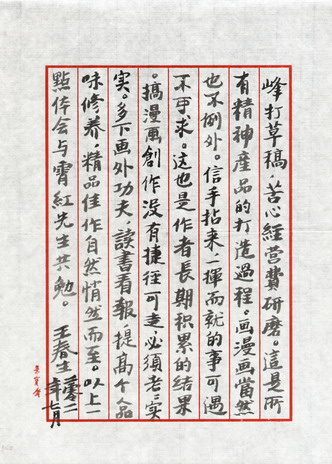 峰打草稿，苦心經營費研磨。這是所
有精神産品的打造過程。画漫画當然
也不例外。信手拈来一揮而就的事可遇
不可求。这也是作者長期积累的结果
。搞漫画創作没有捷径可走，必須老老实
实。多下画外功夫，讀書看報，提高个人品
味修养，精品佳作自然悄然而至。以上一
點体会与霄紅先生共勉。王春生
年七月